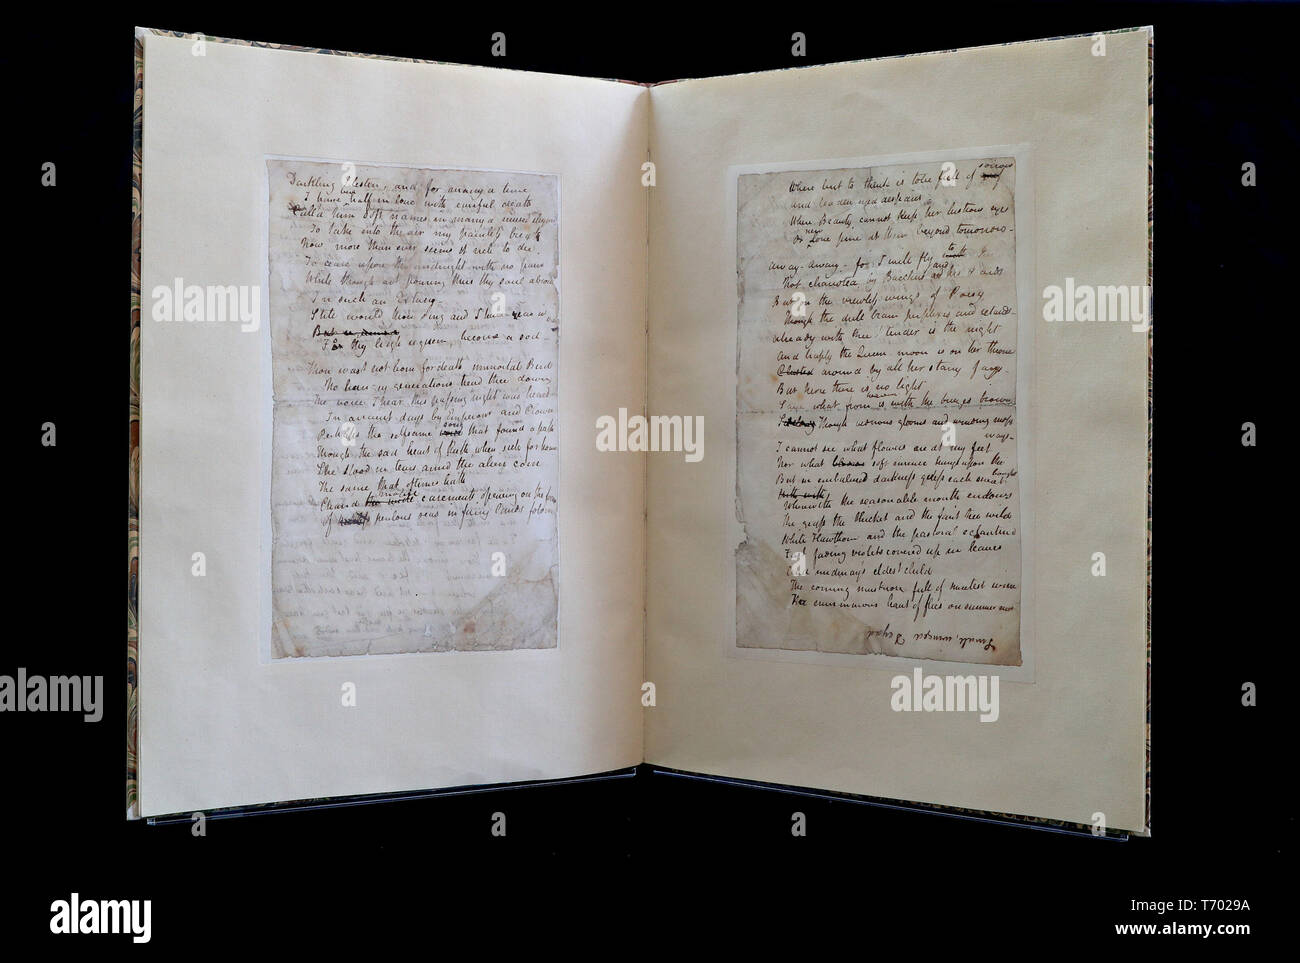 Darkling I listen, and for many a time
I have been half in love with easeful death
Call'd him soft names in many a mused rhyme
To take into the air my painless breath
Now, more than ever seems it rich to die
To cease upon the midnight with no pain
While thou art pouring thus thy soul abroad
In such an Extacy-
Still would thou sing and I have ears in
But
For thy high requiem, become a sod-
Thou wast not born for death immortal Bird
No hungry generations tread thee down
The voice I hear this passing night was heard
In ancient days by Emperour and Clown
Perhaps the selfsame song that found a path
Through the sad heart of Ruth, when sick for home
She stood in tears amid the alien corn
The same that ofttimes hath
Charm'd the casements opening on the foam
Of perilous seas in fairy lands forlorn
Where but to think is to be full of sorrow
and leaden eyed despairs
Where Beauty cannot keep her lustrous eyes
Or new Love pine at them beyond tomorrow-
away-away- for I will fly to thee
Not charioted by Bacchus and his Pards
But on the viewless wings of Poesy
Though the dull brain perplexes and retards-
already with thee! tender is the night
and haply the Queen-moon is on her throne
Cluster'd around by all her starry fays-
But here there is no light
Save what from heaven is with the breezes blown
Through verdrous glooms and winding mossy
ways-
I cannot see what flowers are at my feet
Nor what soft incense hangs upon the boughs
But in embalmed darkness guess each sweet
Wherewith the seasonable month endows
The grass the thicket and the fruit tree wild
White Hawthorn and the pastoral eglantine
Fast fading violets covered up in leaves
And midmay's eldest child
The coming muskrose full of sweetest wine
The murmurous haunt of flies on summer eves
alamy
alamy
Image ID: T7029A
www.alamy.com